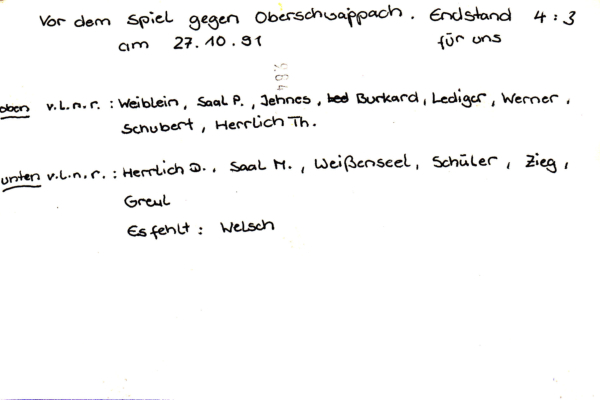 Vor dem Spiel gegen Oberschwappach. Endstand 4:3
am 27.10.91 für uns
oben v.l.n.r.: Weiblein, Saal P., Jehnes, Burkard, Lediger, Werner,
Schubert, Herrlich Th.
unten v.l.n.r.: Herrlich D., Saal M., Weißenseel, Schüler, Zieg,
Greul
Es fehlt: Welsch